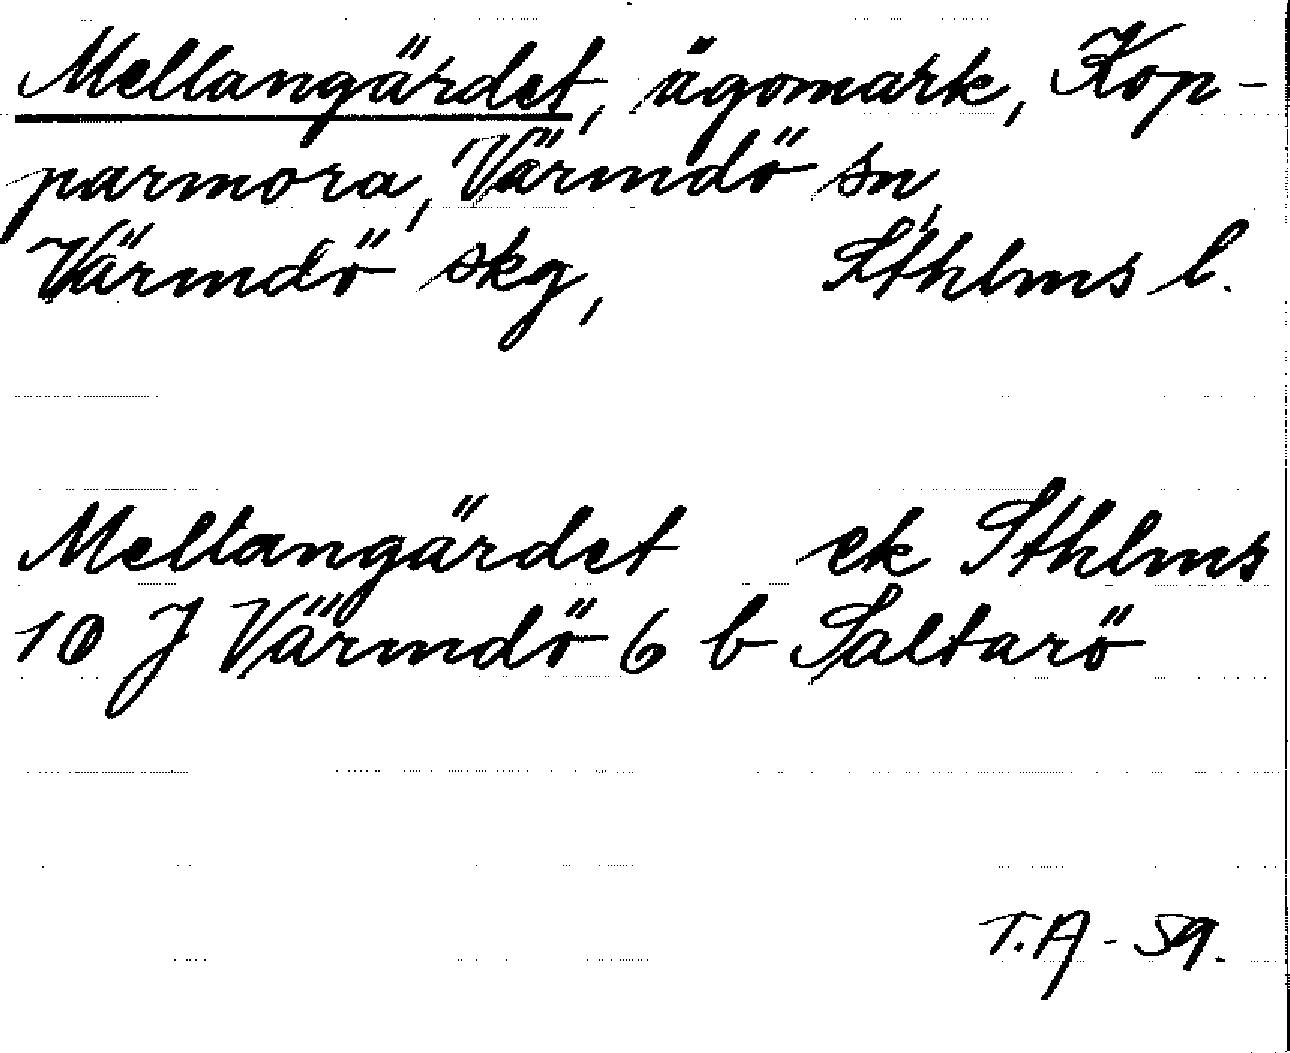 Mellangärdet, ägomark, Kop-
parmora, Värmdö sn,
Värmdö skg, Sthlms l.
Mellangärdet ek Sthlms
10 J Värmdö 6 b Saltarö
T.A - 59.